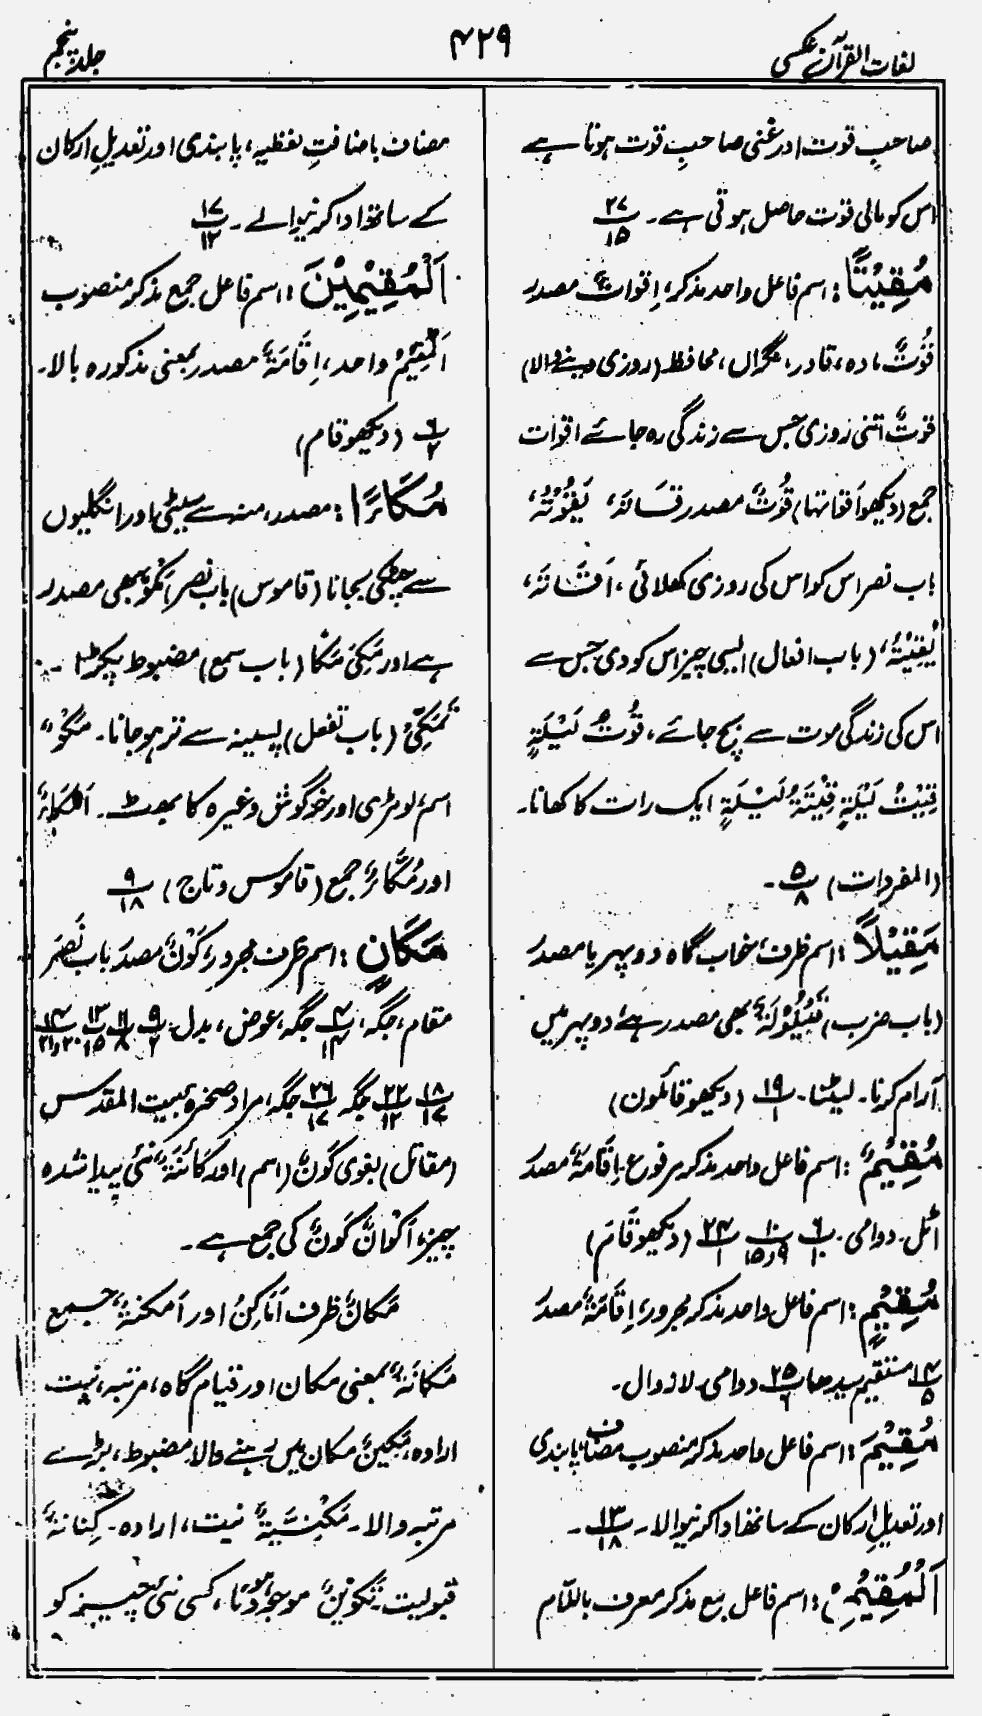 لغات القرآن عکسی
۴۲۹
جلد پنجم
صاحبِ قوت اور غنی صاحبِ قوت ہوتا ہے
اس کو مالی قوت حاصل ہوتی ہے۔ ۲۷/۱۵
مُقِیْتًا: اسم فاعل واحد مذکر، اِقواتٌ مصدر
قُوْتٌ مادہ، قادر، نگراں، محافظ (روزی دینے والا)
قوتٌ اتنی روزی جس سے زندگی رہ جائے اقوات
جمع (دیکھو اَقواتہا) قُوْتٌ مصدر قَاتَہٗ، یَقُوْتُہٗ،
باب نصر اس کو اس کی روزی کھلائی، اَقَاتَہٗ،
یُقِیْتُہٗ، (باب افعال) ایسی چیز اس کو دی جس سے
اس کی زندگی موت سے بچ جائے، قُوْتُ لَیْلَةٍ
قِیْتُ لَیْلَةٍ قِیْتَةُ لَیْلَةٍ ایک رات کا کھانا۔
(المفردات) ۵/۸۔
مَقِیْلًا: اسم ظرف، خواب گاہ دوپہر یا مصدر
(باب ضرب) قَیْلُوْلَةٌ بھی مصدر ہے، دوپہر میں
آرام کرنا۔ لیٹنا۔ ۱۹/۱ (دیکھو قائلون)
مُقِیْمٌ: اسم فاعل واحد مذکر مرفوع۔ اِقَامَةٌ مصدر
اٹل۔ دوامی۔ ۶/۱۰ ۱۰/۹و۱۵ ۲۴/۱ (دیکھو قَامَ)
مُقِیْمٍ: اسم فاعل واحد مذکر مجرور، اِقَامَةٌ مصدر
۱۴/۵ مستقیم سیدھا ۲۵/۶ دوامی۔ لازوال۔
مُقِیْمَ: اسم فاعل واحد مذکر منصوب مضاف، پابندی
اور تعدیلِ ارکان کے ساتھ ادا کرنیوالا۔ ۱۳/۱۸۔
اَلْمُقِیْمِ: اسم فاعل جمع مذکر معرف باللام
مضاف باضافتِ لفظیہ، پابندی اور تعدیلِ ارکان
کے ساتھ ادا کرنیوالے۔ ۱۷/۱۲
اَلْمُقِیْمِیْنَ: اسم فاعل جمع مذکر منصوب
اَلْمُقِیْمُ واحد، اِقَامَةٌ مصدر بمعنی مذکورہ بالا۔
۶/۲ (دیکھو قام)
مُکَآءً: مصدر، منہ سے سیٹی اور انگلیوں
سے چٹکی بجانا (قاموس) باب نصر، مَکْوٌ بھی مصدر
ہے اور مَکِیَ مَکًا (باب سمع) مضبوط پکڑنا۔
تَمَکِّیْ (باب تفعل) پسینہ سے تر ہو جانا۔ مَکْوٌ
اسم، لومڑی اور خرگوش وغیرہ کا بھٹ۔ اَمْکَاءٌ
اور مُکَاءٌ جمع (قاموس و تاج) ۹/۱۸
مَکَانٍ: اسم ظرف مجرور، کَوْنٌ مصدر باب نَصَرَ
مقام، جگہ، ۴/۱۴ جگہ، عوض، بدل۔ ۹/۲ ۱۱/۸ ۱۳/۱۵ ۱۴/۲۰و۲۱
۱۸/۱۷ ۲۲/۱۲ جگہ ۲۶/۱۷ جگہ، مراد صخرہ بیت المقدس
(مقاتل) بغوی کَوْنٌ (اسم) اور کَائِنَةٌ نئی پیدا شدہ
چیز، اَکْوَانٌ کَوْنٌ کی جمع ہے۔
مَکَانٌ ظرف اَمَاکِنُ اور اَمکنةٌ جمع
مَکَانَةٌ بمعنی مکان اور قیام گاہ، مرتبہ، نیت
ارادہ، مَکِیْنٌ مکان میں رہنے والا، مضبوط، بڑے
مرتبہ والا۔ مَکْنِیَّةٌ نیت، ارادہ۔ کِنَانَةٌ
قبولیت۔ تَکْوِیْنٌ موجود ہونا، کسی نئی چیز کو